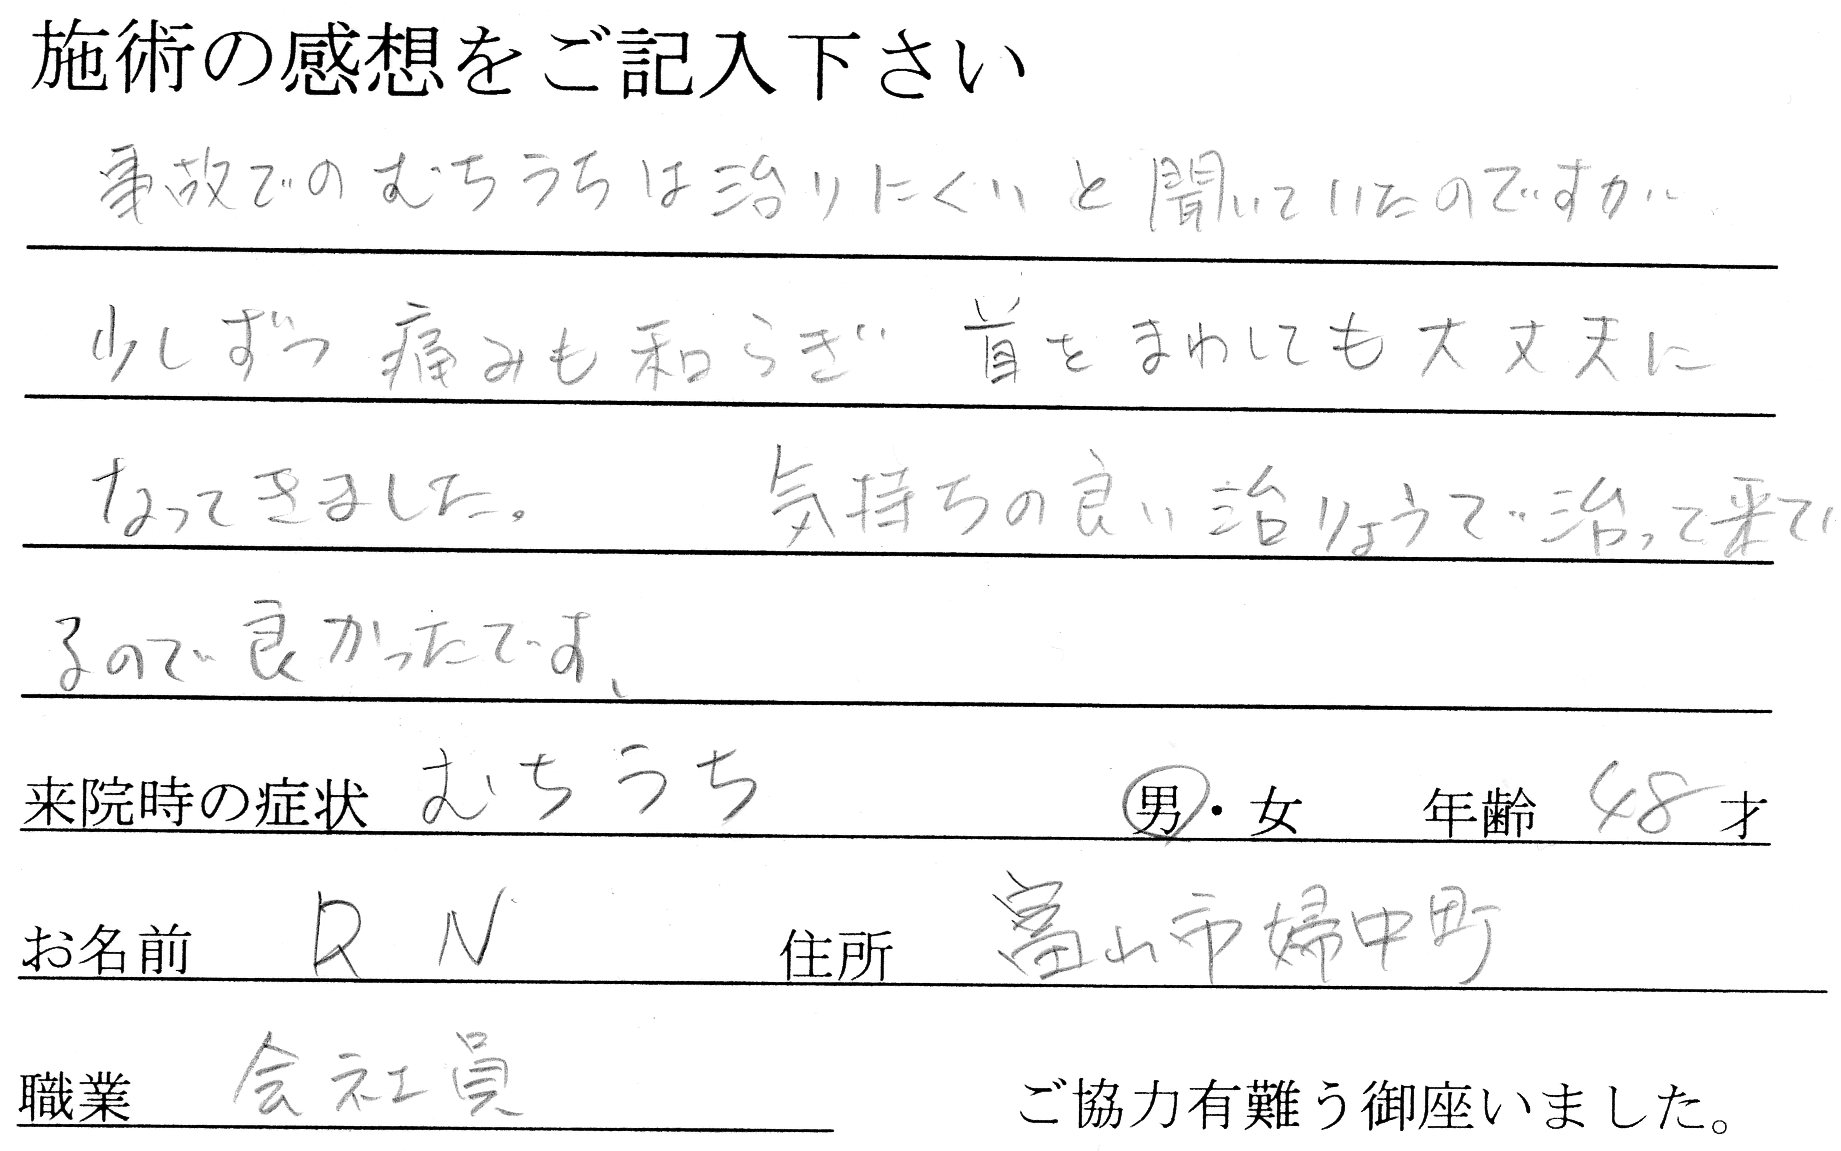 施術の感想をご記入下さい
事故でのむちうちは治りにくいと聞いていたのですが
少しずつ痛みも和らぎ 首をまわしても大丈夫に
なってきました。 気持ちの良い治りょうで治って来てい
るので良かったです、
来院時の症状 むちうち 男・女 年齢 48才
お名前 R N 住所 富山市婦中町
職業 会社員 ご協力有難う御座いました。